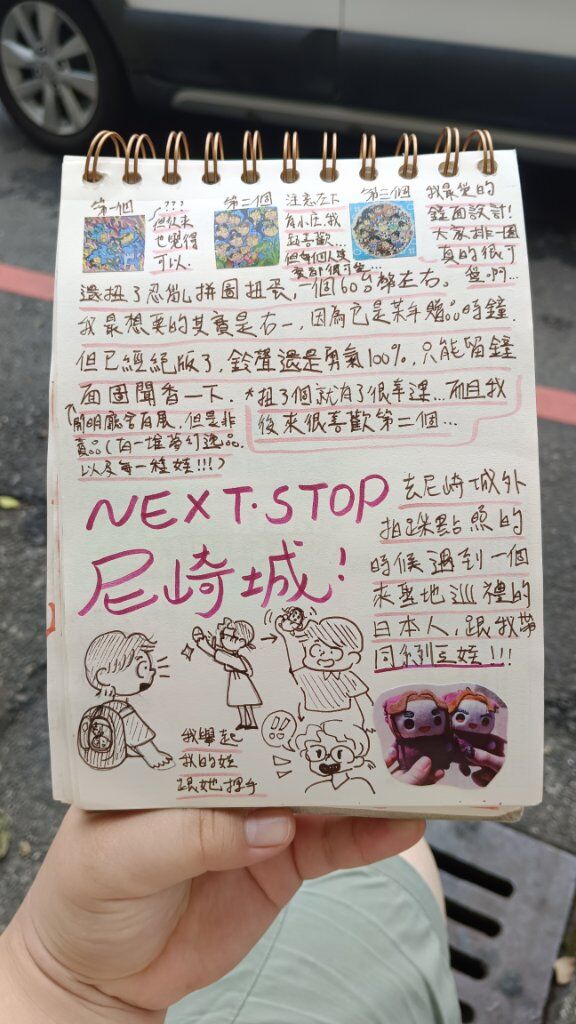 第一個
???
但後來
也覺得
可以.
第二個
注意左下
有小庄.我
超喜歡…
但每個人
都很可愛…
第三個
我最愛的
鐘面設計!
大家排一圈
真的很可
愛啊…
還扭了忍亂拼圖扭蛋,一個60台幣左右。
我最想要的其實是右一,因為它是某年贈品時鐘.
但已經絕版了,鈴聲還是勇氣100%,只能留鐘
面圖聞香一下.
*扭了個就有了很幸運…而且我
後來很喜歡第二個…
開明廳舍有展,但是非
賣品(有一堆夢幻逸品.
以及每一種娃!!!)
NEXT·STOP
尼崎城!
去尼崎城外
拍踩點照的
時候遇到一個
來聖地巡禮的
日本人,跟我帶
同個豆娃!!!
!!
我舉起
我的娃
跟她揮手